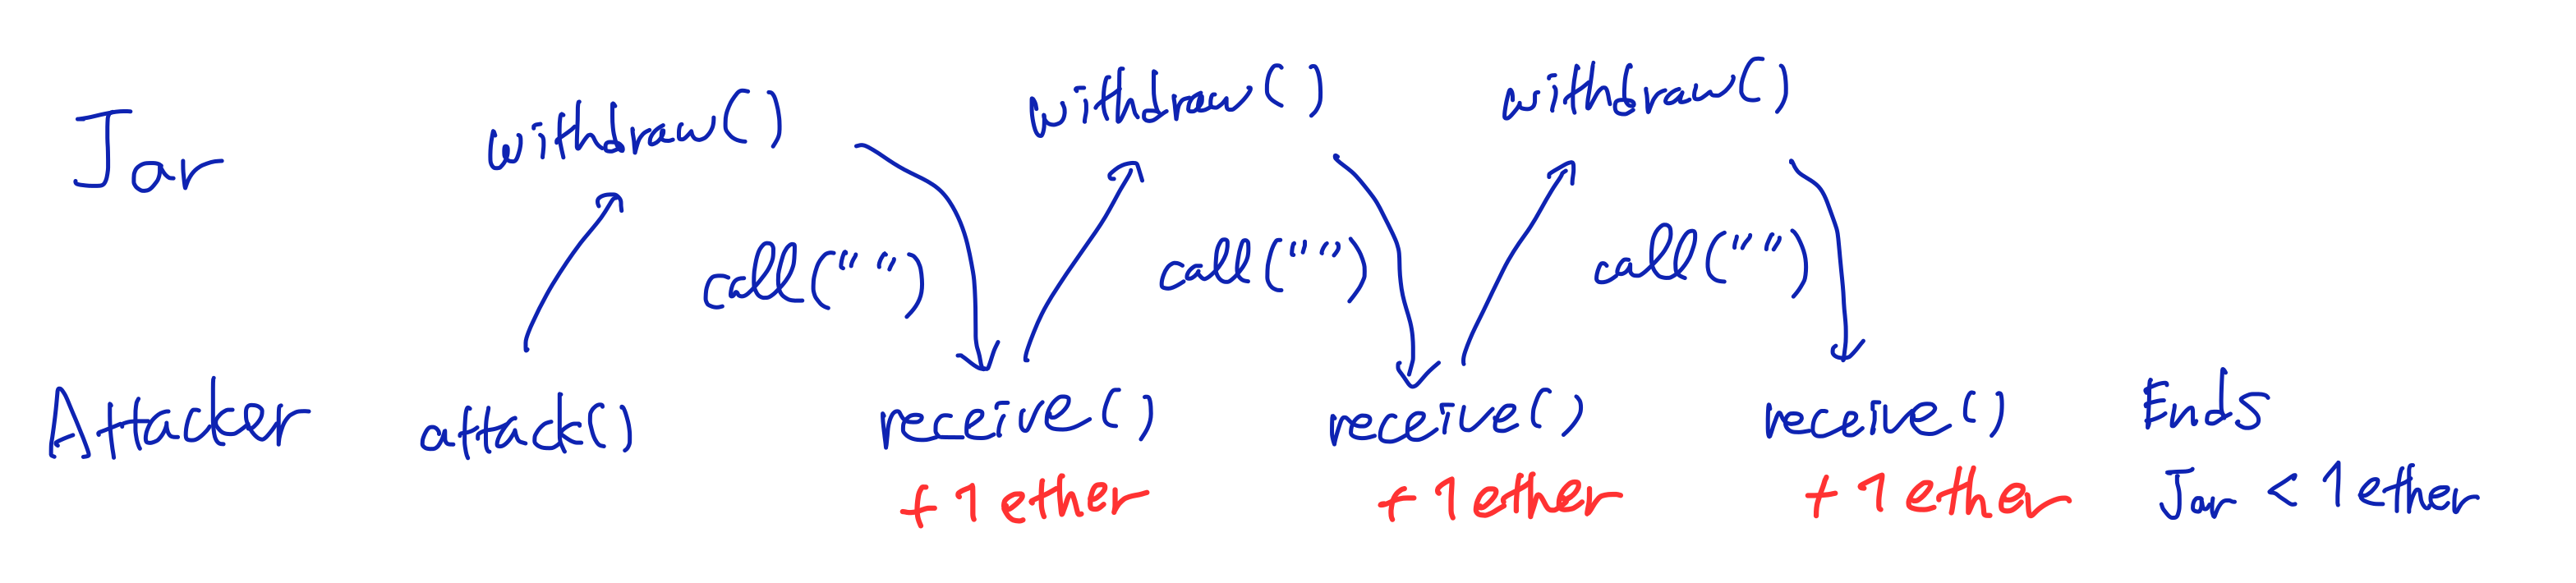 Jar withdraw() withdraw() withdraw()
call("") call("") call("")
Attacker attack() receive() receive() receive() Ends
+1 ether +1 ether +1 ether Jar < 1 ether